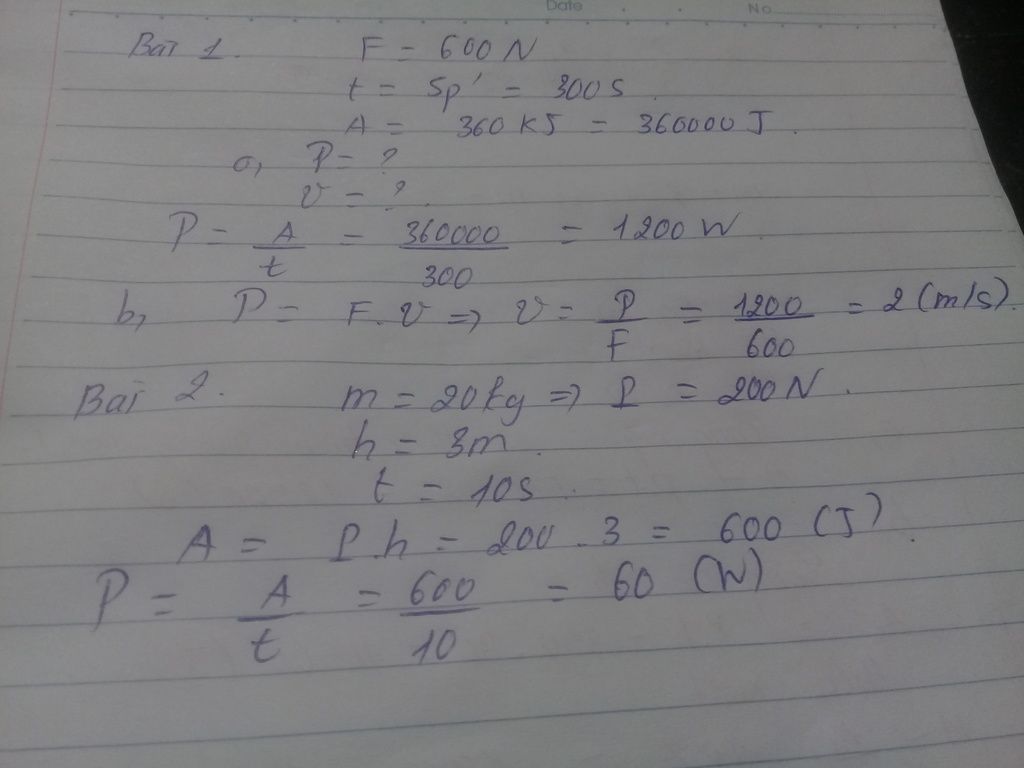 Date No
Bài 1. F = 600 N
t = 5p' = 300 s.
A = 360 KJ = 360000 J.
a, P = ?
v = ?.
P = A/t = 360000/300 = 1200 W
b, P = F.v => v = P/F = 1200/600 = 2 (m/s).
Bài 2. m = 20kg => P = 200 N.
h = 3m.
t = 10s.
A = P.h = 200.3 = 600 (J).
P = A/t = 600/10 = 60 (W)